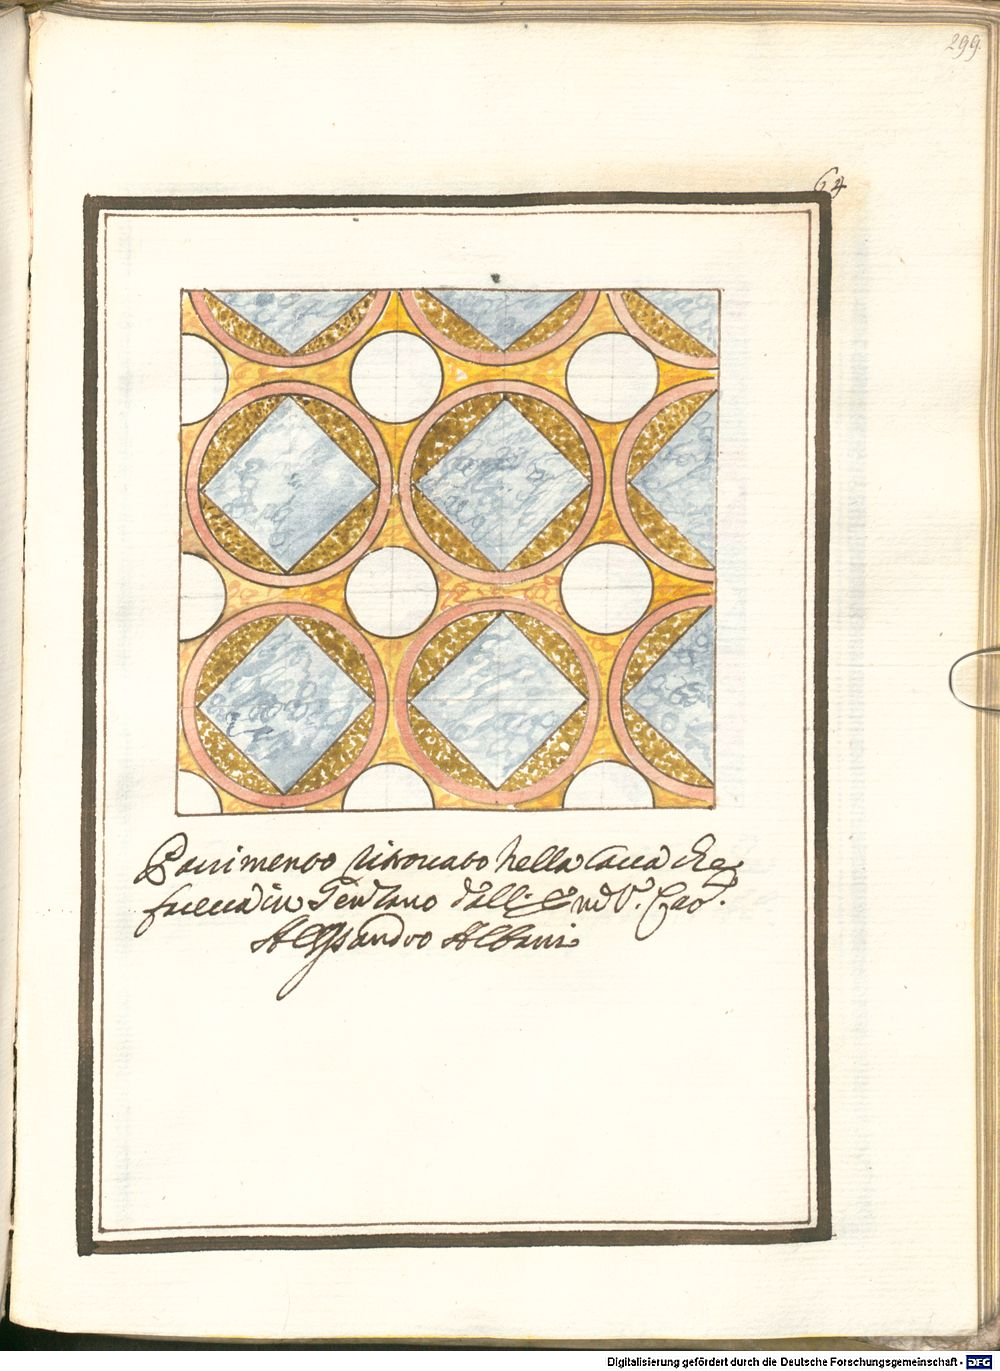 299.
64
Pavimento ritrouato nella caua che
faceua in Genzano dall: Em̃o S.r Card.
Alessandro Albani
Digitalisierung gefördert durch die Deutsche Forschungsgemeinschaft - DFG